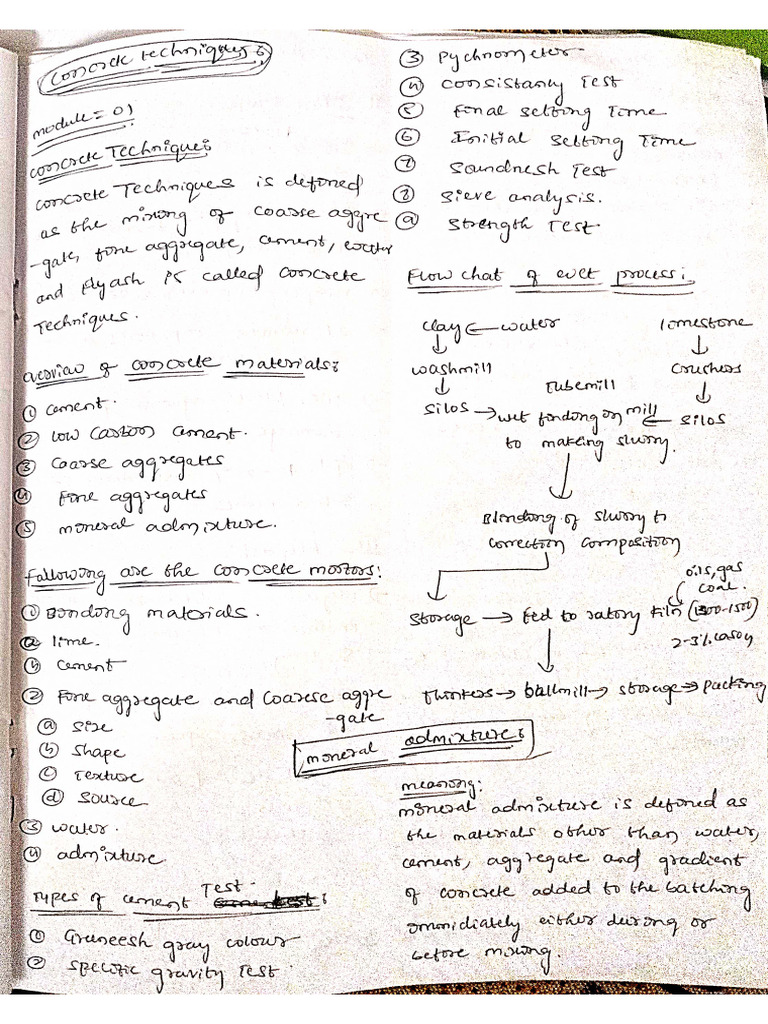 Concrete techniques:
module = 01
Concrete Technique:
Concrete Techniques is defined
as the mixing of coarse aggre
-gate, fine aggregate, cement, water
and flyash is called concrete
Techniques.
overview of concrete materials:
① cement.
② low carbon cement.
③ Coarse aggregates
④ Fine aggregates
⑤ mineral admixture.
Following are the concrete
① Binding materials.
ⓐ lime.
ⓑ cement
② Fine aggregate and coarse aggre
-gate
ⓐ Size
ⓑ Shape
ⓒ Texture
ⓓ Source
③ water.
④ admixture
Types of cement Test:
① Greneesh gray colour
② Specific gravity Test.
③ Pychnometer
④ Consistancy Test
⑤ Final setting Time
⑥ Initial setting Time
⑦ Soundnesh Test
⑧ Sieve analysis.
⑨ Strength Test.
Flow chat of wet process:
clay ← water limestone
washmill crushers
Tubemill
Silos → wet mill ← silos
to making slurry.
Blinding of slurry to
correction composition
oils, gas
coal.
Storage → fed to ratory kiln (1300-1500)
2-3%
→ ballmill → storage → packing
mineral admixture:
meaning:
mineral admixture is defined as
the materials other than water,
cement, aggregate and gradient
of concrete added to the batching
immidiately either during or
before mixing.